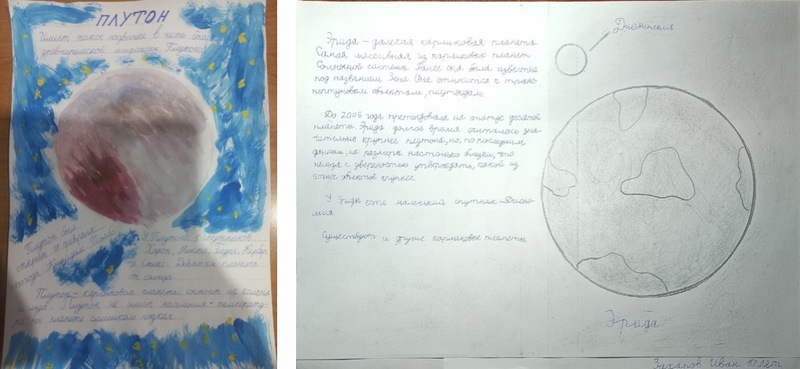 ПЛУТОН
Имеет такое название в честь бога
древнеримской мифологии Плутона
Плутон был
открыт 18 февраля
года
У Плутона 5 спутников
Харон, Никта, Гидра, Кербер
Стикс Девятая планета
от солнца
Плутон- карликовая планета состоит из камня
и льда. Плутон не имеет населения - температу-
ра на планете слишком низкая
Эрида - далекая карликовая планета
Самая массивная из карликовых планет
Солнечной системы. Ранее она была известна
под названием Зена. Она относится к транс-
нептуновым объектам, плутоидам.
До 2006 года претендовала на статус десятой
планеты. Эрида долгое время считалась зна-
чительно крупнее плутона, но, по последним
данным, их размеры настолько близки, что
нельзя с уверенностью утверждать, какой из
этих объектов крупнее.
У Эриды есть маленький спутник - Дисно-
мия
Существуют и другие карликовые планеты
Дисномия
Эрида
Захаров Иван лет